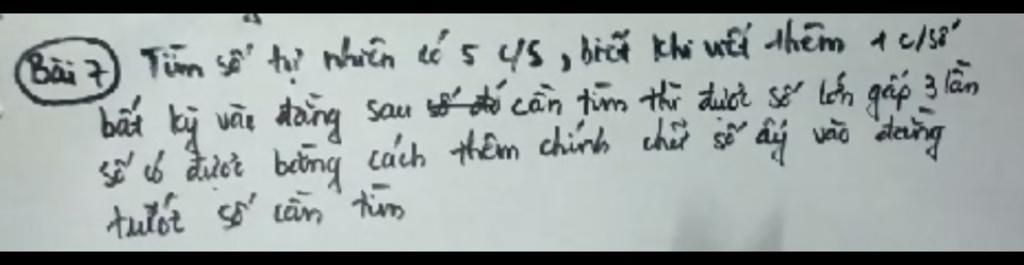 Bài 7 Tìm số tự nhiên có 5 c/s, biết khi viết thêm 1 c/số
bất kỳ vào đằng sau số đó cần tìm thì được số lớn gấp 3 lần
số có được bằng cách thêm chính chữ số ấy vào đằng
trước số cần tìm